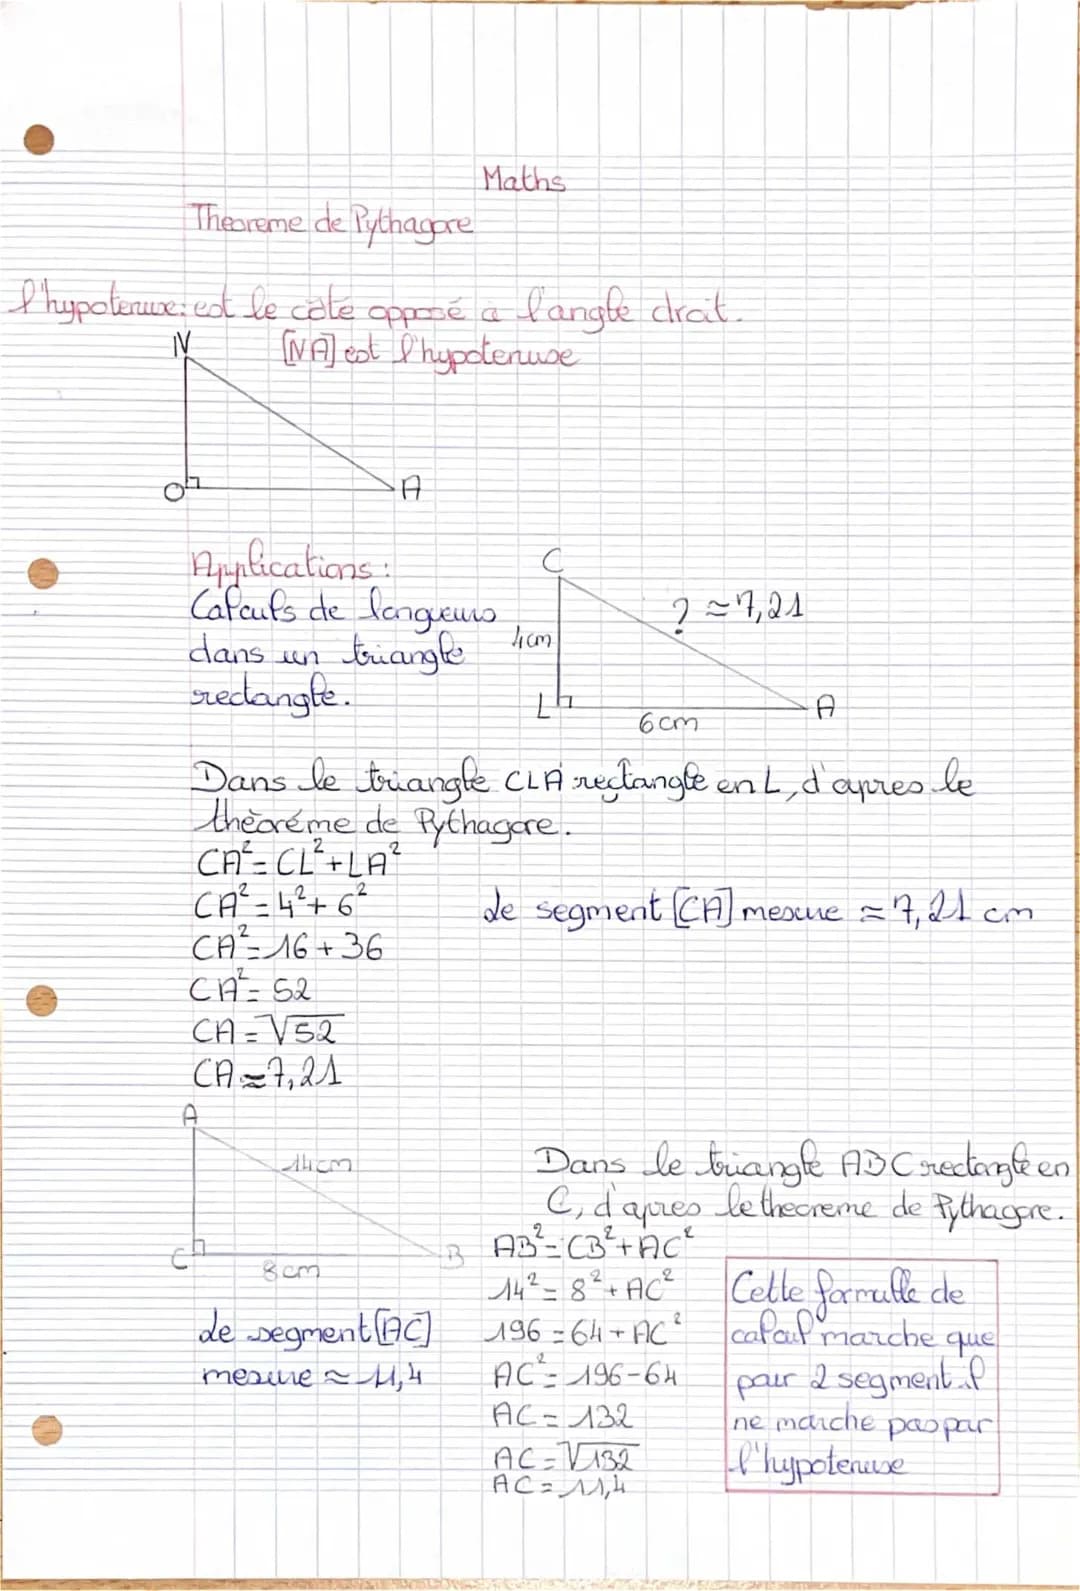 Maths
Theoreme de Pythagore
l'hypotenuse: est le côté opposé à l'angle droit.
N
[NA] est l'hypotenuse
O
A
Applications :
Calculs de longueurs
dans un triangle
rectangle.
C
? ≈ 7,21
4cm
L
6cm
A
Dans le triangle CLA rectangle en L, d'apres le
thèoréme de Pythagore.
CA² = CL² + LA²
CA² = 4² + 6²
CA² = 16 + 36
CA² = 52
CA = √52
CA ≈ 7,21
Le segment [CA] mesure ≈ 7,21 cm
A
14cm
C
8cm
B
Le segment [AC]
mesure ≈ 11,4
Dans le triangle ABC rectangle en
C, d'apres le theoreme de Pythagore.
AB² = CB² + AC²
14² = 8² + AC²
196 = 64 + AC²
AC² = 196 - 64
AC = 132
AC = √132
AC = 11,4
Cette formulle de
calcul marche que
pour 2 segment il
ne marche pas par
l'hypotenuse